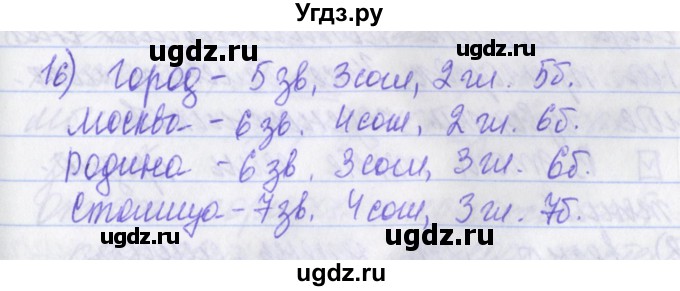 Угдз.ру
ugdz.ru ugdz.ru
16) город - 5 зв, 3 согл, 2 гл. 5б.
ugdz.ru
москва - 6 зв. 4 согл, 2 гл. 6б.
ugdz.ru ugdz.ru
родина - 6 зв. 3 согл, 3 гл. 6б.
ugdz.ru
столица - 7 зв. 4 согл, 3 гл. 7б.
ugdz.ru ugdz.ru
ugdz.ru